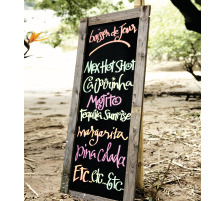 boisson de Jour
Mex Hot Shot
Caïpirinha
Mojito
Tequila Sunrise
margarita
Pina Colada
Etc. Etc. Etc.